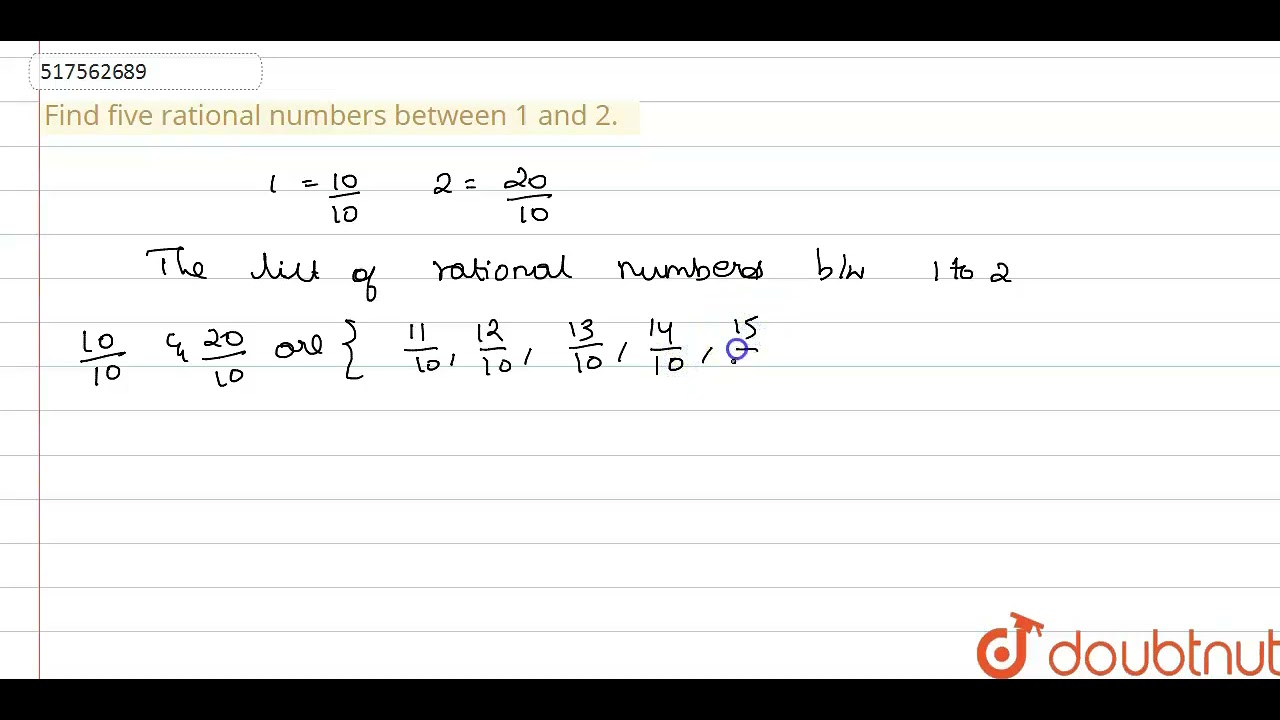 517562689
Find five rational numbers between 1 and 2.
1 = 10/10 2 = 20/10
The list of rational numbers b/w 1 to 2
10/10 & 20/10 are { 11/10, 12/10, 13/10, 14/10, 15
doubtnut